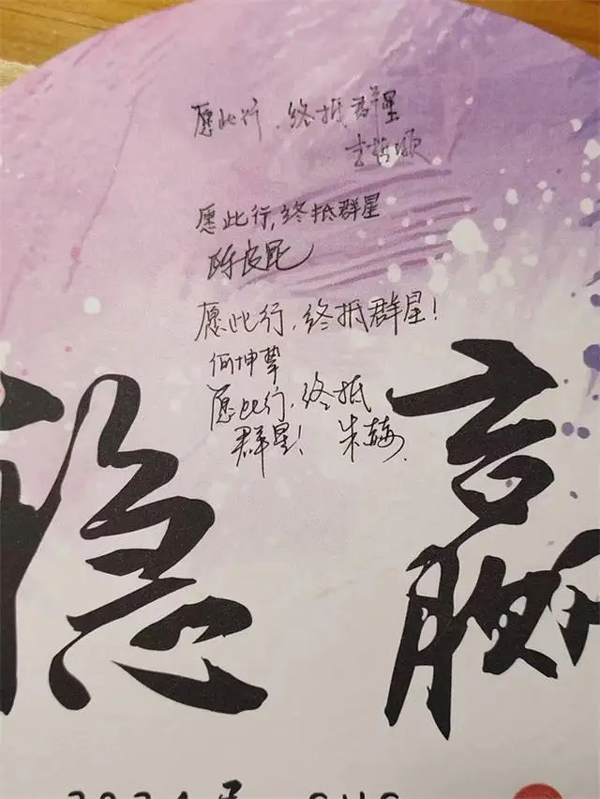 愿此行,终抵群星
愿此行,终抵群星
愿此行,终抵群星!
何坤摯
愿此行,终抵
群星! 朱赫
稳 赢